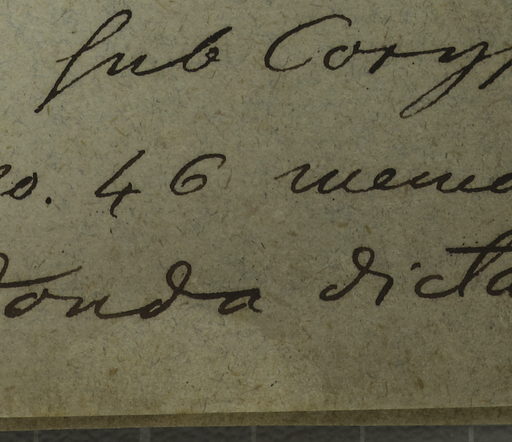 Sub Coryp
o. 46 memo
tonda dicta